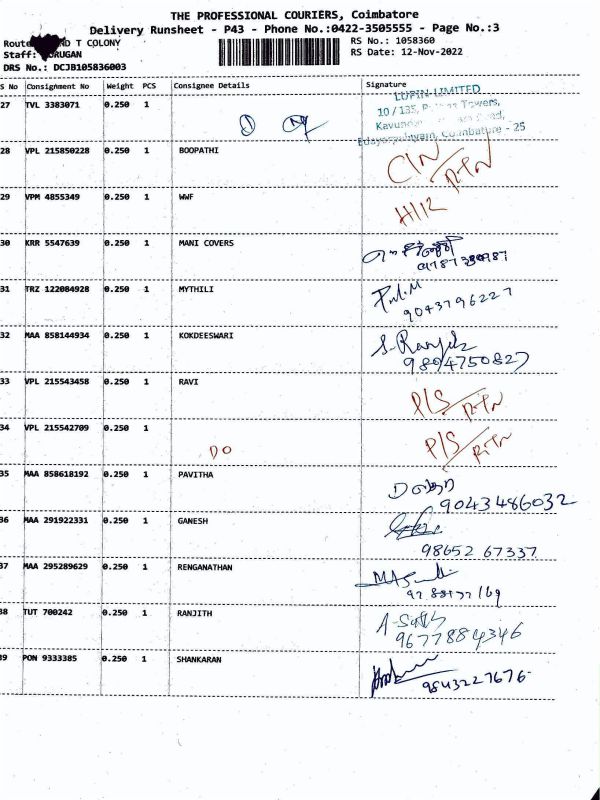 THE PROFESSIONAL COURIERS, Coimbatore
Delivery Runsheet - P43 - Phone No.:0422-3505555 - Page No.:3
Route ND T COLONY
RS No.: 1058360
Staff: ORUGAN
RS Date: 12-Nov-2022
DRS No.: DCJB105836003
S No Consignment No Weight PCS Consignee Details Signature
27 TVL 3383071 0.250 1
LUPIN LIMITED
10 / 135, Towers,
Coimbatore - 25
28 VPL 215850228 0.250 1 BOOPATHI CIN/RTN
29 VPM 4855349 0.250 1 WWF H/12
30 KRR 5547639 0.250 1 MANI COVERS
31 TRZ 122084928 0.250 1 MYTHILI
9043796227
32 MAA 858144934 0.250 1 KOKDEESWARI
9894750827
33 VPL 215543458 0.250 1 RAVI P/S/RTN
34 VPL 215542709 0.250 1 DO P/S/RTN
35 MAA 858618192 0.250 1 PAVITHA
9043486032
36 MAA 291922331 0.250 1 GANESH
98652 67337
37 MAA 295289629 0.250 1 RENGANATHAN
38 TUT 700242 0.250 1 RANJITH
9677884346
39 PON 9333385 0.250 1 SHANKARAN
9543227676